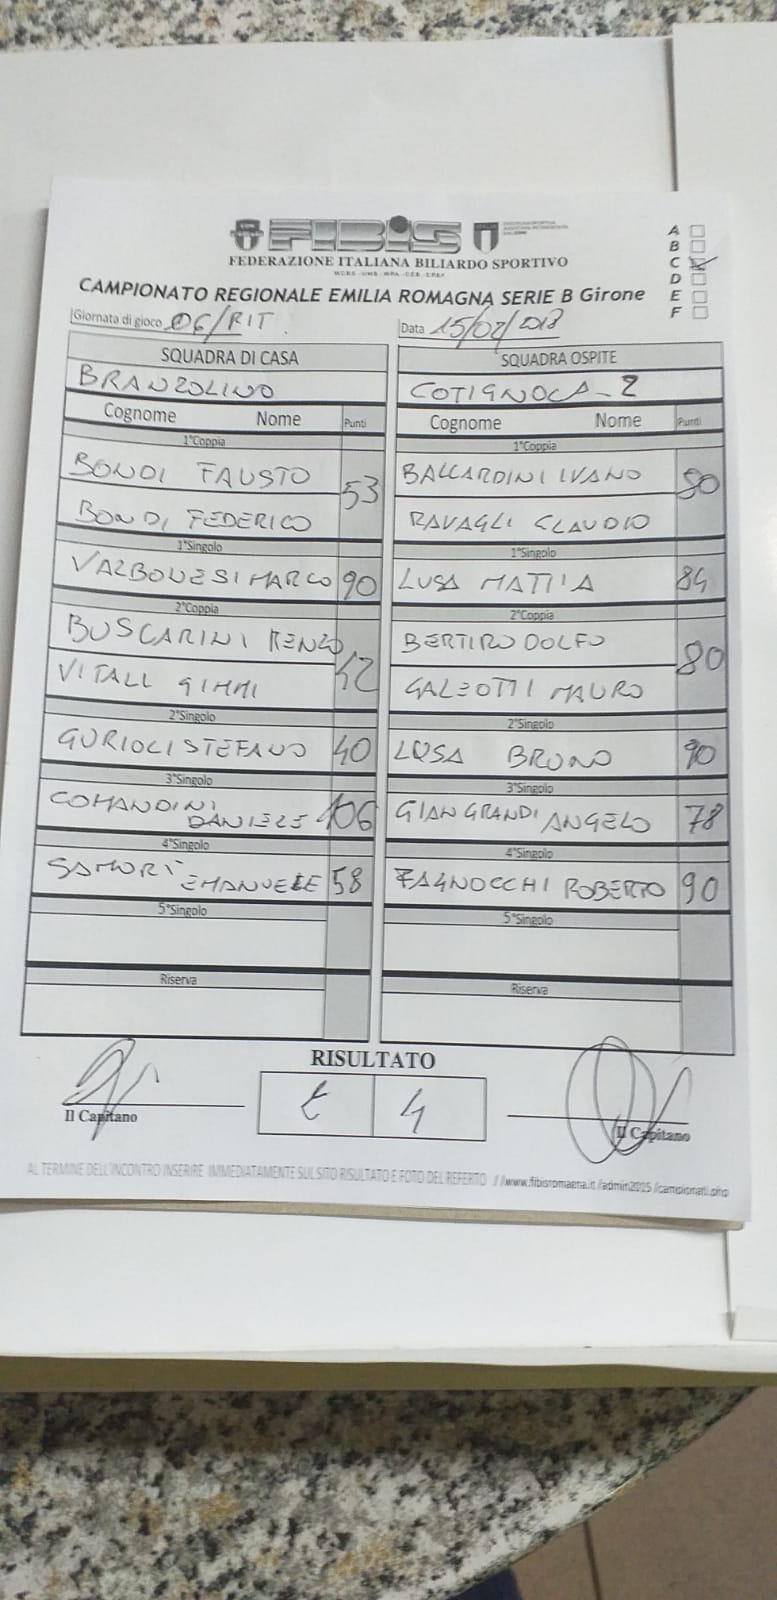 FIBIS
FEDERAZIONE ITALIANA BILIARDO SPORTIVO
CAMPIONATO REGIONALE EMILIA ROMAGNA SERIE B Girone
A
B
C
D
E
F
Giornata di gioco 06/RIT.
Data 15/02/2018
SQUADRA DI CASA
BRANZOLINO
Cognome Nome Punti
1°Coppia
BONDI FAUSTO 53
BONDI FEDERICO
1°Singolo
VALBONESI MARCO 90
2°Coppia
BUSCARINI RENZO
VITALI GIMMI
2°Singolo
GURIOLI STEFANO 40
3°Singolo
COMANDINI
DANIELE 106
4°Singolo
SAMORI' EMANUELE 58
5°Singolo
Riserva
SQUADRA OSPITE
COTIGNOLA-2
Cognome Nome Punti
1°Coppia
BALLARDINI IVANO 80
RAVAGLI CLAUDIO
1°Singolo
LUSA MATTIA 84
2°Coppia
BERTI RODOLFO 80
GALEOTTI MAURO
2°Singolo
LUSA BRUNO 90
3°Singolo
GIANGRANDI ANGELO 78
4°Singolo
FAGNOCCHI ROBERTO 90
5°Singolo
Riserva
RISULTATO
4
Il Capitano
Il Capitano
AL TERMINE DELL'INCONTRO INSERIRE IMMEDIATAMENTE SUL SITO RISULTATO E FOTO DEL REFERTO //www.fibisromagna.it/admin2015/campionati.php